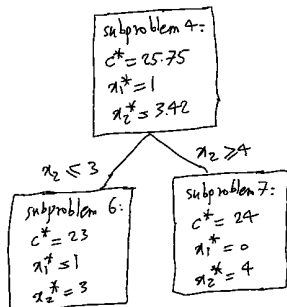 subproblem 4:
c* = 25.75
x₁* = 1
x₂* = 3.42
x₂ ≤ 3
x₂ ≥ 4
subproblem 6:
c* = 23
x₁* = 1
x₂* = 3
subproblem 7:
c* = 24
x₁* = 0
x₂* = 4